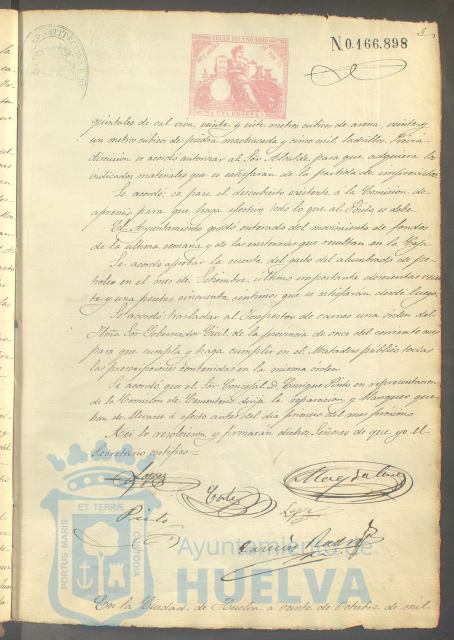 N.0.166.898
UNA PESETA
quintales de cal viva, veinte y siete metros cúbicos de arena, veinte y
un metros cúbicos de piedra machacada y cinco mil ladrillos. Previa
discusion se acordó autorizar al Sor. Alcalde para que adquiera los
indicados materiales que se satisfarán de la partida de imprevistos
Se acordó; se pase el descubierto existente á la Comision de
apremio para que haga efectivo todo lo que al Pósito se debe.
El Ayuntamiento quedó enterado del movimiento de fondos
de la última semana y de las existencias que resultan en la Caja.
Se acordó aprobar la cuenta del gasto del alumbrado de pe-
troleo en el mes de Setiembre último importante doscientas vein-
te y una pesetas cincuenta centimos que se satisfarán desde luego.
Se acordó: trasladar al Inspector de carnes una órden del
Iltmo Sor. Gobernador Civil de la provincia de once del corriente mes
para que cumpla y haga cumplir en el Matadero público todas
las prescripciones contenidas en la misma órden
Se acordó que el Sor. Concejal D. Enrique Pinto en representacion
de la Comision de Cementerio dirija la reparacion y blanqueo que
han de llevarse á efecto antes del dia primero del mes próximo
Asi lo resolvieron y firmarán dichos Señores de que yo el
Secretario certifico=
Lopez
Pinto
ET TERRÆ
PORTUS MARIS
CUSTODIA
Ayuntamiento de
HUELVA
En la Ciudad de Huelva a veinte de Octubre de mil